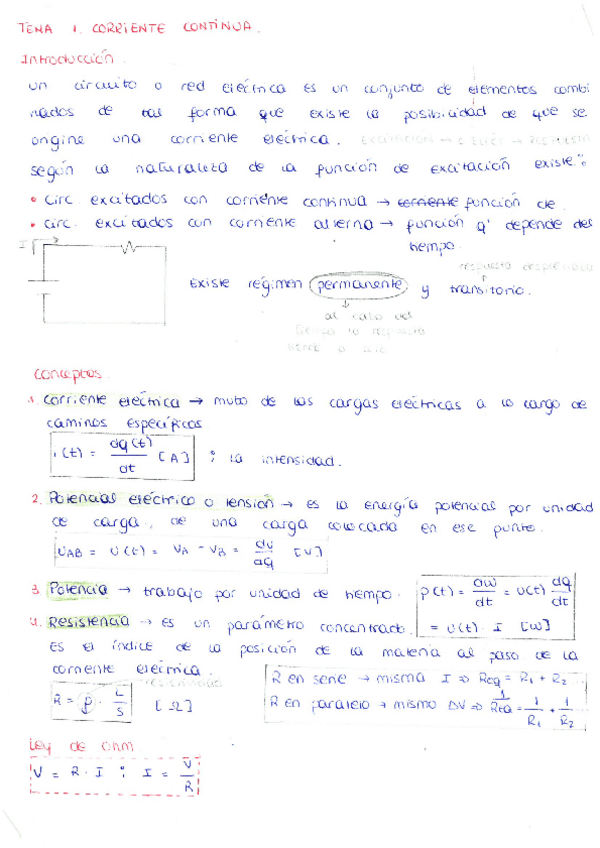 TEMA 1. CORRIENTE CONTINUA.
Introducción.
un circuito o red eléctrica es un conjunto de elementos combi
nados de tal forma que existe la posibilidad de que se
origine una corriente eléctrica. EXCITACIÓN → C. ELÉCT → RESPUESTA
según la naturaleza de la función de excitación existe:
• circ. excitados con corriente continua → corriente función cte.
• circ. excitados con corriente alterna → función q' depende del
tiempo.
I
respuesta despreciada
Existe régimen permanente y transitorio.
↓
al cabo del
tiempo la respuesta
tiende a
Conceptos.
1. Corriente eléctrica → mvto de las cargas eléctricas a lo largo de
caminos específicos
i(t) = dq(t)/dt [A] ; la intensidad.
2. Potencial eléctrico o tensión → es la energía potencial por unidad
de carga, de una carga colocada en ese punto.
UAB = U(t) = VA - VB = dU/dq [V]
3. Potencia → trabajo por unidad de tiempo. p(t) = dw/dt = U(t) dq/dt
= U(t) · I [W]
4. Resistencia → es un parámetro concentrado.
Es el índice de la posición de la materia al paso de la
corriente eléctrica.
resistividad
R = ρ · L/S [Ω]
R en serie → misma I ⇒ Req = R1 + R2
R en paralelo → mismo ΔV ⇒ 1/Req = 1/R1 + 1/R2
Ley de Ohm
V = R · I ; I = V/R